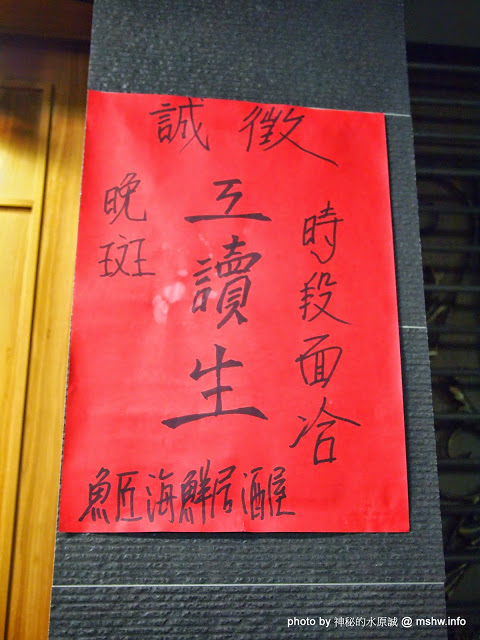 誠徵
時段面洽
工讀生
晚斑
魚匠海鮮居酒屋
photo by 神秘的水原誠 @ mshw.info